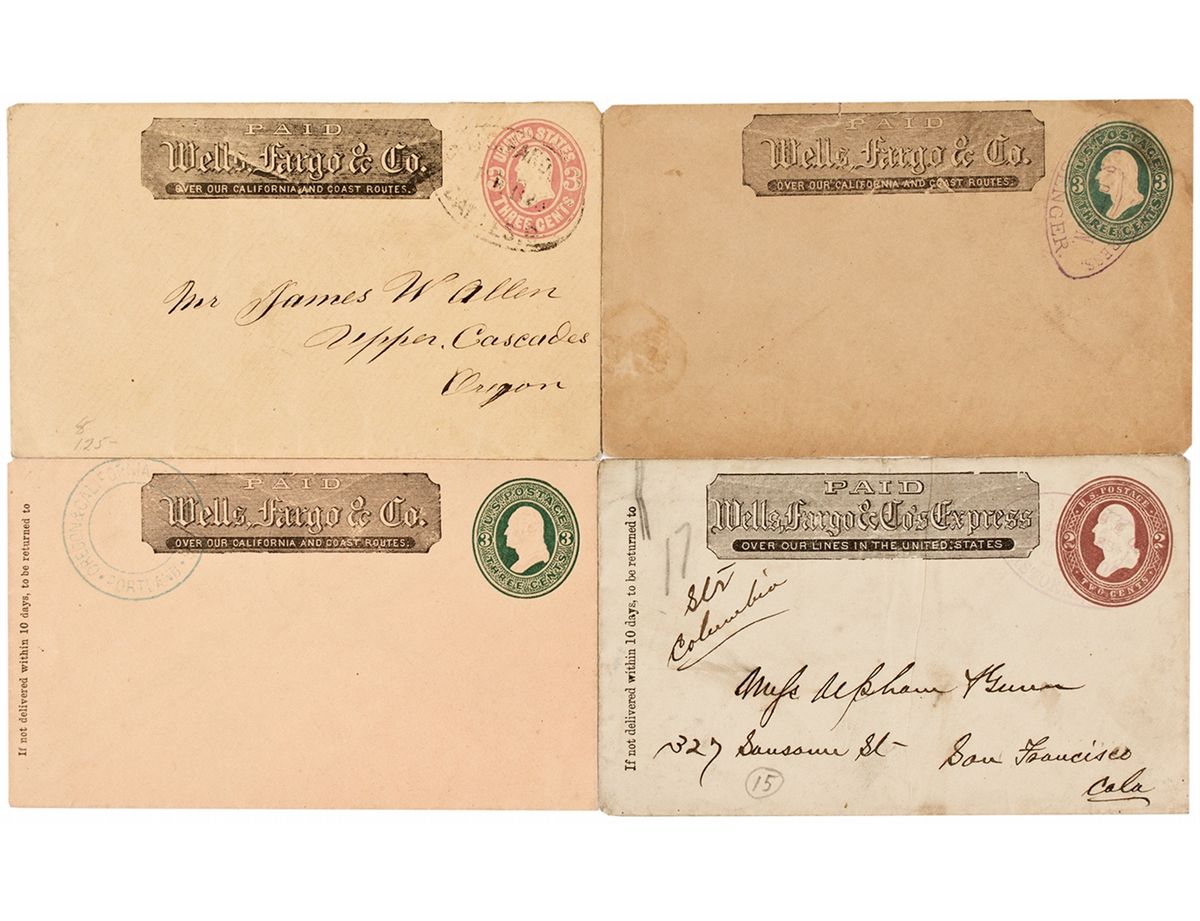 PAID
Wells, Fargo & Co.
OVER OUR CALIFORNIA AND COAST ROUTES.
UNITED STATES
3 3
THREE CENTS
Mr James W Allen
Upper Cascades
Oregon
8
125-
PAID
Wells, Fargo & Co.
OVER OUR CALIFORNIA AND COAST ROUTES.
U.S. POSTAGE
3 3
THREE CENTS
If not delivered within 10 days, to be returned to
PORTLAND
PAID
Wells, Fargo & Co.
OVER OUR CALIFORNIA AND COAST ROUTES.
U.S. POSTAGE
3 3
THREE CENTS
If not delivered within 10 days, to be returned to
17
PAID
Wells, Fargo & Co's Express
OVER OUR LINES IN THE UNITED STATES
U.S. POSTAGE
2 2
TWO CENTS
Str
Columbia
Upham & Gunn
327 Sansome St- San Francisco
Cala
15